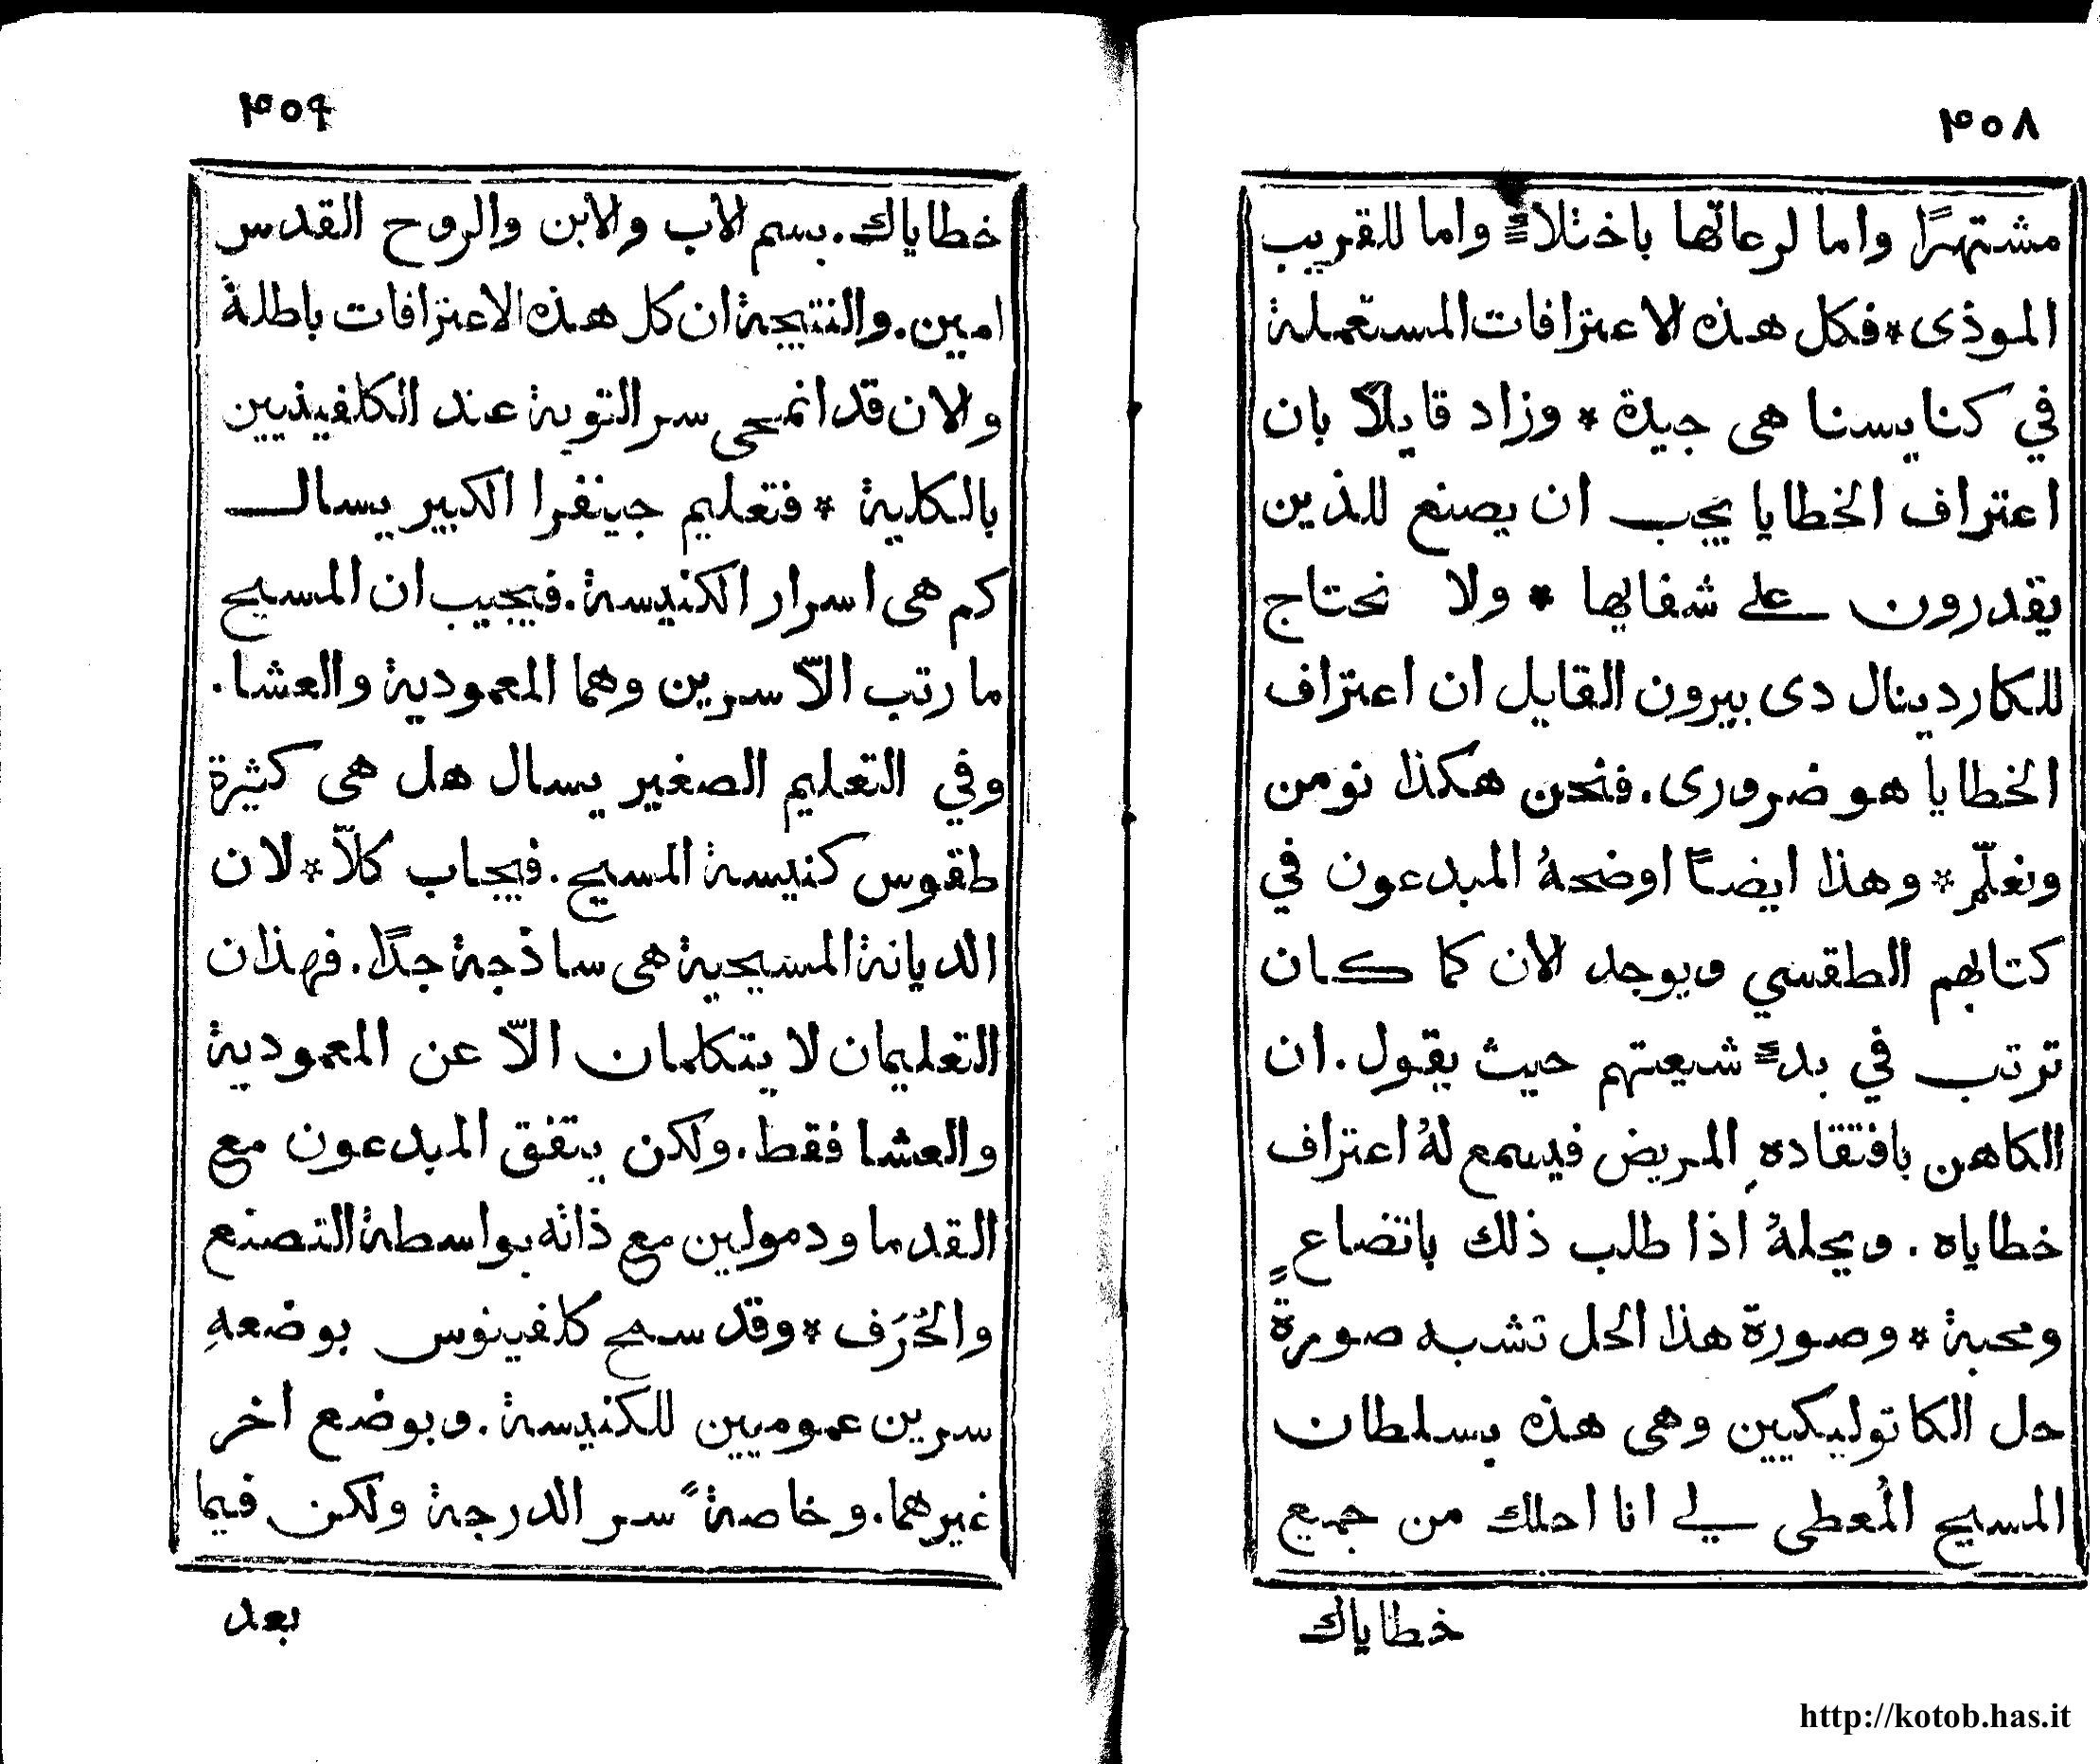 ٣٥٨
مشتهرًا واما لرعاتها باختلاءٍ واما للقريب
الموذى * فكل هذه الاعترافات المستعملة
في كنايسنا هى جيدة * وزاد قايلًا بان
اعتراف الخطايا يجب ان يصنع للذين
يقدرون على شفايها * ولا نحتاج
للكاردينال دى بيرون القايل ان اعتراف
الخطايا هو ضرورى. فنحن هكذا نومن
ونعلّم * وهذا ايضًا اوضحهُ المبدعون في
كتابهم الطقسي ويوجد الان كما كان
ترتب في بدءِ شيعتهم حيث يقول. ان
الكاهن بافتقادهِ المريض فيسمع لهُ اعتراف
خطاياه. ويحلهُ اذا طلب ذلك باتضاعٍ
ومحبة * وصورة هذا الحل تشبه صورة
حل الكاتوليكيين وهى هذه بسلطان
المسيح المُعطى لي انا احلك من جميع
خطاياك
٣٥٩
خطاياك. بسم الاب والابن والروح القدس
امين. والنتيجة ان كل هذه الاعترافات باطلة
والان قد انمحى سر التوبة عند الكلفينيين
بالكلية * فتعليم جينفرا الكبير يسال
كم هى اسرار الكنيسة. فيجيب ان المسيح
ما رتب الّا سرين وهما المعمودية والعشا.
وفي التعليم الصغير يسال هل هى كثيرة
طقوس كنيسة المسيح. فيجاب كلّا * لان
الديانة المسيحية هى ساذجة جدًا. فهذان
التعليمان لا يتكلمان الّا عن المعمودية
والعشا فقط. ولكن يتفق المبدعون مع
القدما ودمولين مع ذاته بواسطة التصنع
والحُرَف * وقد سمح كلفينوس بوضعهِ
سرين عموميين للكنيسة. وبوضع اخر
غيرهما. وخاصةً سر الدرجة ولكن فيما
بعد
http://kotob.has.it